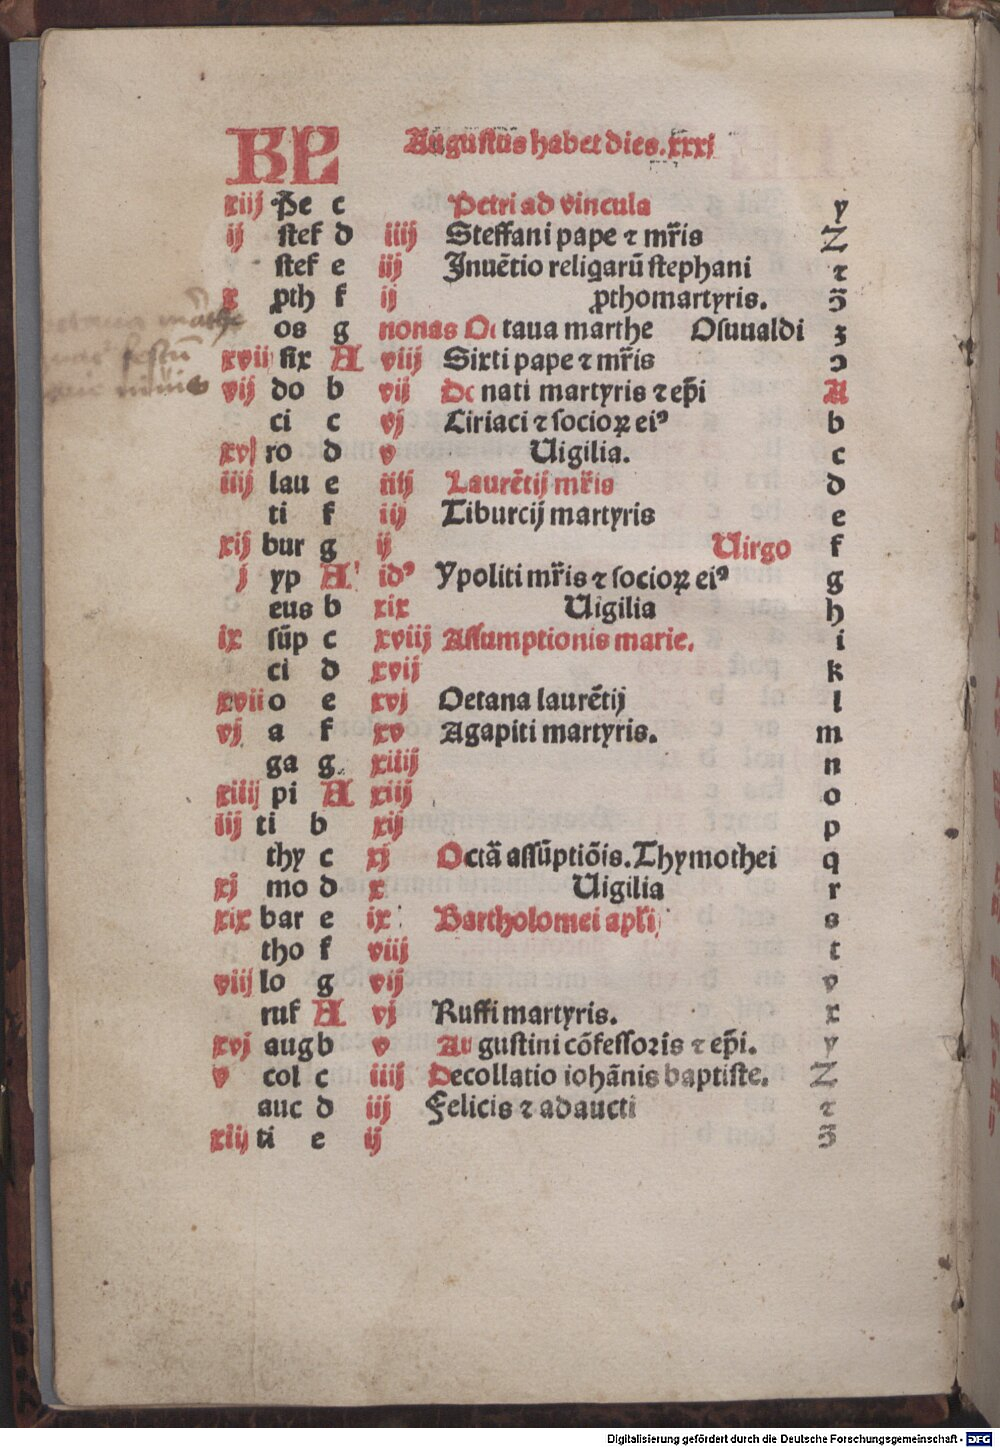 KL Augustus habet dies.xxxj
xiij Pe c Petri ad vincula y
ij stef d iiij Steffani pape ⁊ mr̄is Z
stef e iij Inuētio religarū stephani ⁊
x pth f ij pthomartyris. 
os g nonas Octaua marthe Osuualdi ꝫ
xvii six A viij Sixti pape ⁊ mr̄is ɔ
vij do b vij Donati martyris ⁊ ep̄i A
ci c vj Ciriaci ⁊ socioꝝ eiꝰ b
xvj ro d v Uigilia. c
iiij lau e iiij Laurētij mr̄is d
ti f iij Tiburcij martyris e
xij bur g ij Uirgo f
j yp A idꝰ Ypoliti mr̄is ⁊ socioꝝ eiꝰ g
eus b xix Uigilia h
ix sūp c xviij Assumptionis marie. i
ci d xvij k
xvii o e xvj Oetana laurētij l
vj a f xv Agapiti martyris. m
ga g. xiiij n
xiiij pi A xiij o
iij ti b xij p
thy c xj Octā assūptiōis. Thymothei q
xj mo d x Uigilia r
xix bar e ix Bartholomei apl̄i s
tho f viij t
viij lo g vij v
ruf A vj Ruffi martyris. x
xvj aug b v Augustini cōfessoris ⁊ ep̄i. y
v col c iiij Decollatio iohānis baptiste. Z
auc d iij Felicis ⁊ adaucti ⁊
xiij ti e ij
Digitalisierung gefördert durch die Deutsche Forschungsgemeinschaft - DFG